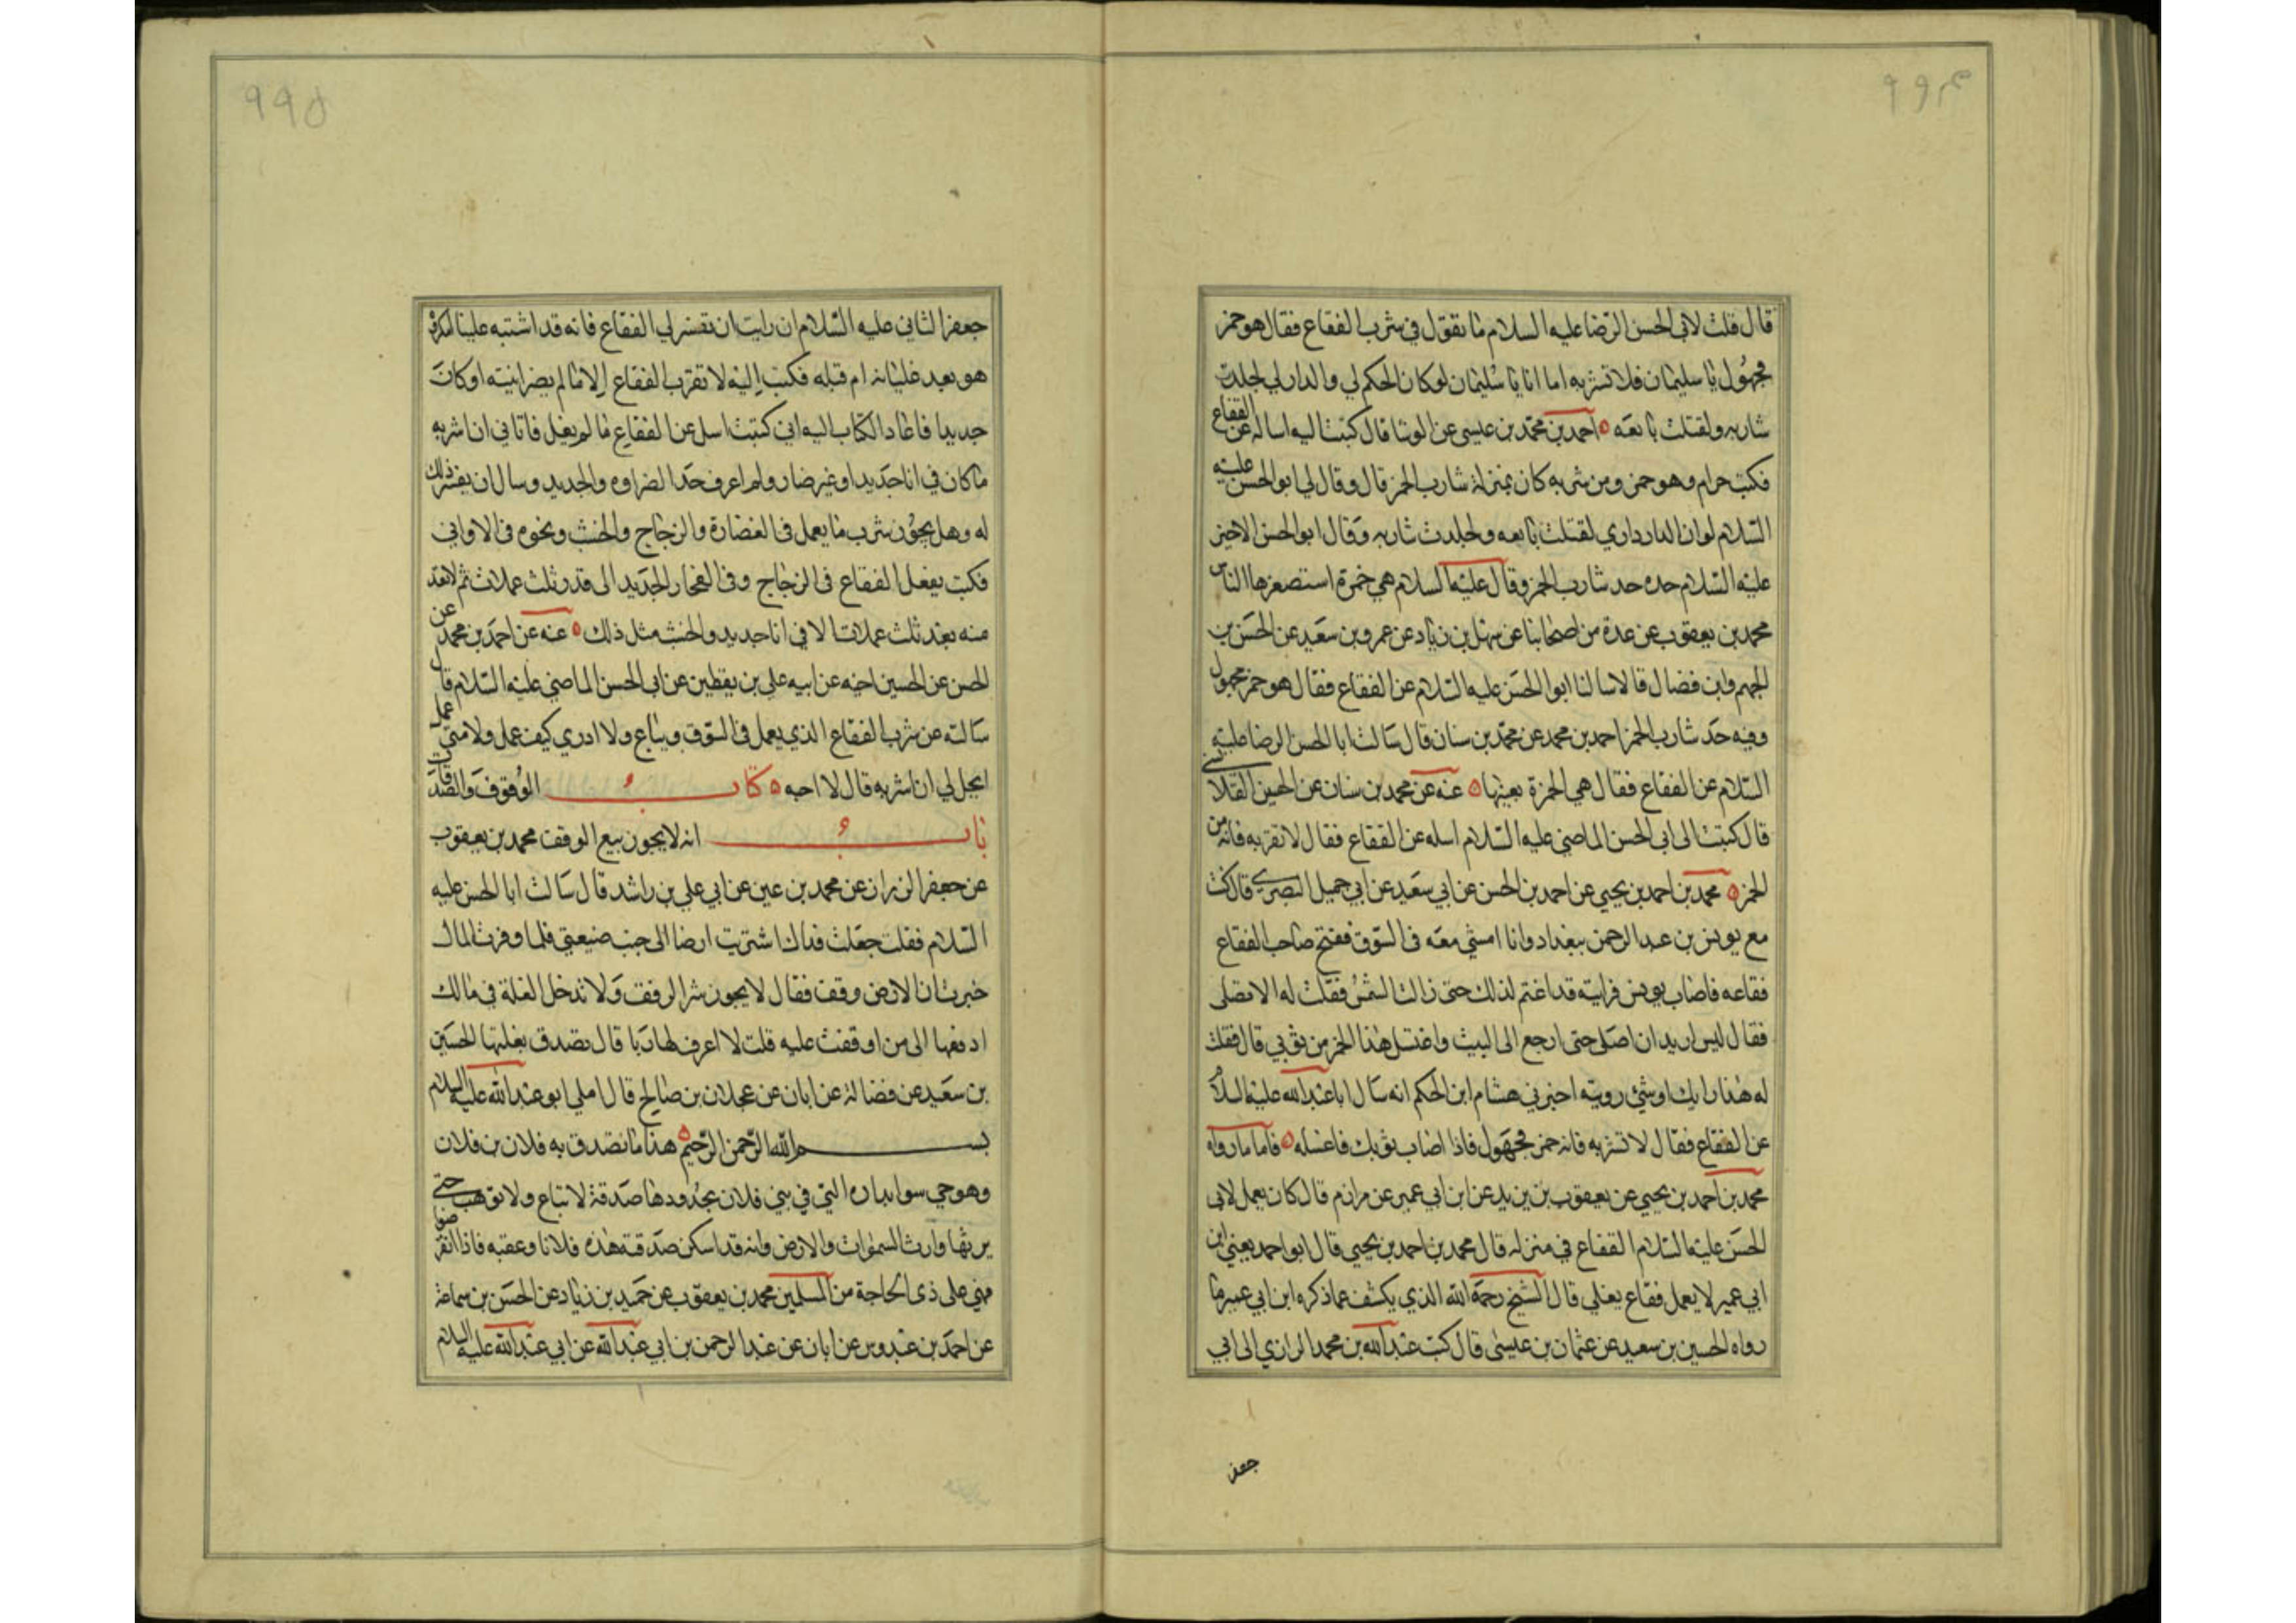 ۹۹۴
قال قلت لابي الحسن الرضا عليه السلام ما تقول في شرب الفقاع فقال هو خمر
مجهول يا سليمان فلا تشربه اما انا يا سليمان لو كان الحكم لي والدار لي لجلدت
شاربه ولقتلت بايعه ه احمد بن محمد بن عيسى عن الوشا قال كتبت اليه اساله عن الفقاع
فكتب حرام وهو خمر ومن شربه كان بمنزلة شارب الخمر قال وقال لي ابو الحسن عليه
السلام لو ان الدار داري لقتلت بايعه ولجلدت شاربه وقال ابو الحسن الاخير
عليه السلام حده حد شارب الخمر وقال عليه السلام هي خمرة استصغرها الناس
محمد بن يعقوب عن عدة من اصحابنا عن سهل بن زياد عن عمرو بن سعيد عن الحسن بن
الجهم وابن فضال قالا سالنا ابوا الحسن عليه السلام عن الفقاع فقال هو خمر مجهول
وفيه حد شارب الخمر احمد بن محمد عن محمد بن سنان قال سالت ابا الحسن الرضا عليه
السلام عن الفقاع فقال هي الخمرة بعينها ه عنه عن محمد بن سنان عن الحسين القلانسي
قال كتبت الى ابي الحسن الماضي عليه السلام اسله عن الفقاع فقال لا تقربه فانه من
الخمر ه محمد بن احمد بن يحيي عن احمد بن الحسن عن ابي سعيد عن ابي جميل البصري قال كنت
مع يونس بن عبد الرحمن ببغداد وانا امشي معه في السوق ففتح صاحب الفقاع
فقاعه فاصاب يونس فرايته قد اغتم لذلك حتى زالت الشمس فقلت له الا تصلى
فقال ليس اريد ان اصلى حتى ارجع الى البيت واغتسل هذا الخمر من ثوبي قال فقلت
له هذا رايك او شئ رويته اخبرني هشام ابن الحكم انه سال ابا عبد الله عليه السلام
عن الفقاع فقال لا تشربه فانه خمر مجهول فاذا اصاب ثوبك فاغسله ه فاما ما رواه
محمد بن احمد بن يحيي عن يعقوب بن يزيد عن ابن ابي عمير عن مرازم قال كان يعمل لابي
الحسن عليه السلام الفقاع في منزله قال محمد بن احمد بن يحيى قال ابو احمد يعني ابن
ابي عمير لا يعمل فقاع يغلي قال الشيخ رحمة الله الذي يكشف عما ذكره ابن ابي عمير ما
رواه الحسين بن سعيد عن عثمان بن عيسى قال كتب عبد الله بن محمد الرازي الى ابي
جعفر
۹۹۵
جعفر الثاني عليه السلام ان رايت ان تفسر لي الفقاع فانه قد اشتبه علينا امكروه
هو بعد غليانه ام قبله فكتب اليه لا تقرب الفقاع الا ما لم يضر انيته او كان
جديدا فاعاد الكتاب اليه اني كتبت اسل عن الفقاع ما لم يغل فاتاني ان اشربه
ما كان في انا جديد او غير ضار ولم اعرف حد الضراوة والجديد وسال ان يفسر ذلك
له وهل يجوز شرب ما يعمل في الغضارة والزجاج والخشب ونحوه في الاواني
فكتب يفعل الفقاع في الزجاج وفي الفخار الجديد الى قدر ثلث عملات ثم لا تعد
منه بعد ثلث عملات الا في انا جديد والخشب مثل ذلك ه عنه عن احمد بن محمد عن
الحسن عن الحسين اخيه عن ابيه علي بن يقطين عن ابي الحسن الماضي عليه السلام قال
سالته عن شرب الفقاع الذي يعمل في السوق ويباع ولا ادري كيف عمل ولا متى عمل
ايحل لي ان اشربه قال لا احبه ه كتاب الوقوف والصدقات
باب انه لا يجوز بيع الوقف محمد بن يعقوب
عن جعفر الرزاز عن محمد بن عيي عن ابي علي بن راشد قال سالت ابا الحسن عليه
السلام فقلت جعلت فداك اشتريت ارضا الى جنب ضيعتي فلما وفرت المال
خبرت ان الارض وقف فقال لا يجوز شرا الوقف ولا تدخل الغلة في مالك
ادفعها الى من اوقفت عليه قلت لا اعرف لها ربا قال تصدق بغلتها الحسين
بن سعيد عن فضالة عن ابان عن عجلان بن صالح قال املي ابو عبد الله عليه السلام
بسم الله الرحمن الرحيم ه هذا ما تصدق به فلان بن فلان
وهو حي سوا بداره التي في بني فلان بحدودها صدقة لا تباع ولا توهب حتى
يرثها وارث السموات والارض وانه قد اسكن صدقته هذه فلانا وعقبه فاذا انقرضوا
فهي على ذي الحاجة من المسلمين محمد بن يعقوب عن حميد بن زياد عن الحسن بن سماعة
عن احمد بن عبدوس عن ابان عن عبد الرحمن بن ابي عبد الله عن ابي عبد الله عليه السلام